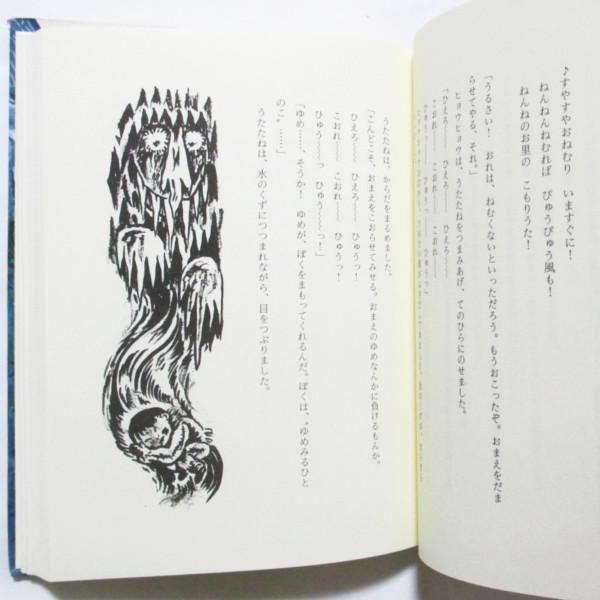 ♪すやすやおねむり　いますぐに！
ねんねんねむれば　びゅうびゅう風も！
ねんねのお里の　こもりうた！
「うるさい！　おれは、ねむくないといっただろう。もうおこったぞ。おまえをだま
らせてやる、それ。」
ヒョウヒョウは、うたたねをつまみあげ、てのひらにのせました。
「ひえろ――　ひえろ――　ひえろ――
こおれ――　こおれ――　こおれ――
ひゅうっ――　ひゅうっ」
うたたねは、からだをまるめました。
「こんどこそ、おまえをこおらせてみせる。おまえのゆめなんかに負けるもんか。
ひえろ――　ひえろ――　ひゅうっ！
こおれ――　こおれ――　ひゅうっ！
ひゅう――っ　ひゅう――っ！」
「ゆめ……、そうか！　ゆめが、ぼくをまもってくれるんだ。ぼくは、〝ゆめみるひと
のこ〟……」
うたたねは、氷のくずにつつまれながら、目をつぶりました。